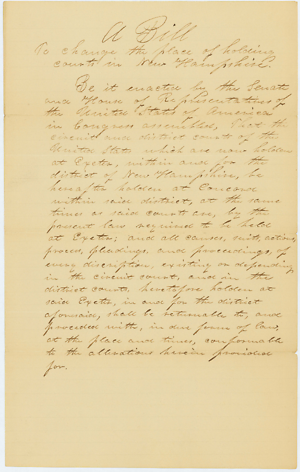 A Bill
To change the place of holding
courts in New Hampshire.
Be it enacted by the Senate
and House of Representatives of
the United States of America
in Congress assembled, That the
circuit and district courts of the
United States which are now holden
at Exeter, within and for the
district of New Hampshire, be
hereafter holden at Concord
within said district, at the same
times as said courts are, by the
present law required to be held
at Exeter; and all causes, suits, actions,
process, pleadings, and proceedings, of
every discription, existing or depending
in the circuit court, and in the
district courts, heretofore holden at
said Exeter, in and for the district
aforesaid, shall be returnable to, and
proceeded with, in due form of law,
at the place and times, conformable
to the alterations herein provided
for.